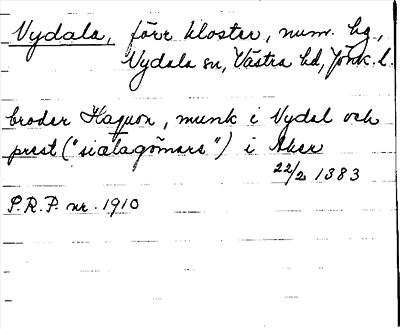 Vydala, förr kloster, num. hg.,
Vydala sn, Västra hd, Jönk. l.
broder Haquon, munk i Vydal och
prest ("siælagömare") i Aker
22/2 1383
P.R.P. nr. 1910